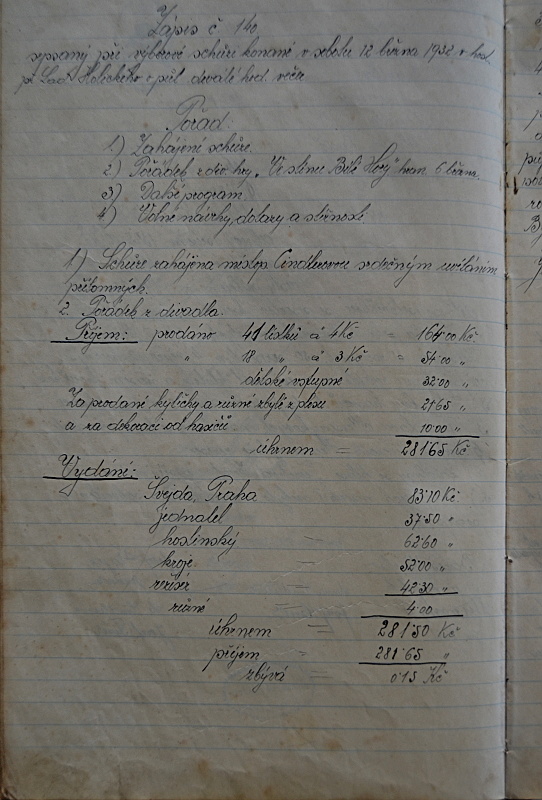 Zápis č. 140
sepsaný při výborové schůzi konané v sobotu 12 března 1932 v host.
p. Lad. Holického v půl deváté hod. večer
Pořad
1) Zahájení schůze.
2) Pořádek z div. hry „Ve stínu Bílé Hory" hran. 6 března.
3) Další program
4) Volné návrhy, dotazy a stížnosti
1) Schůze zahájena místop. Cindlerovou srdečným uvítáním
přítomných.
2. Pořádek z divadla.
Příjem: prodáno 41 lístků á 4 Kč = 164·00 Kč
" 18 " á 3 Kč = 54·00 "
dětské vstupné 32·00 "
Za prodané kytičky a různé zbylé z plesu 21·65 "
a za dekoraci od hasičů 10·00 "
úhrnem = 281·65 Kč
Vydání:
Švejda, Praha 83·10 Kč.
jednatel 37·50 "
hostinský = 62·60 "
kroje = 52·00 "
režisér = 42·30 "
různé = 4·00
úhrnem = 281·50 Kč
příjem = 281·65 "
zbývá = 0·15 Kč